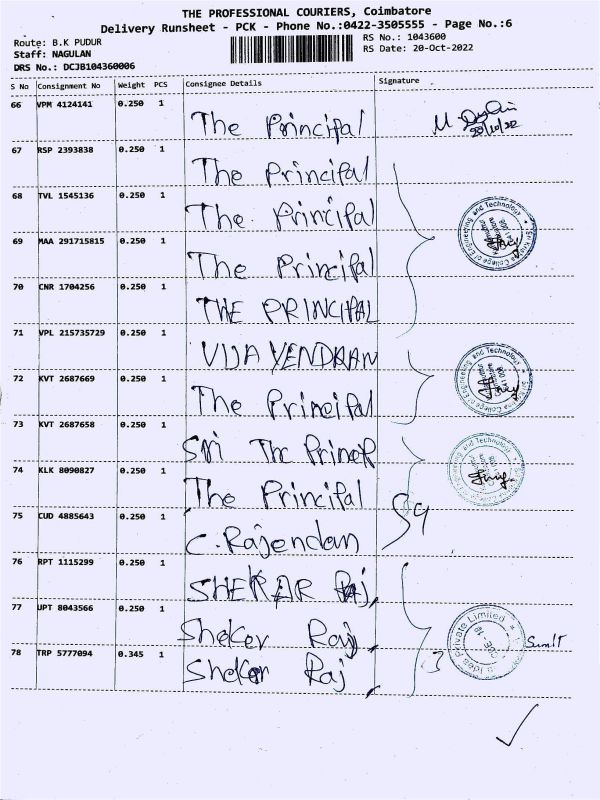 THE PROFESSIONAL COURIERS, Coimbatore
Delivery Runsheet - PCK - Phone No.:0422-3505555 - Page No.:6
Route: B.K PUDUR
RS No.: 1043600
Staff: NAGULAN
RS Date: 20-Oct-2022
DRS No.: DCJB104360006
S No Consignment No Weight PCS Consignee Details Signature
66 VPM 4124141 0.250 1 The Principal
20/10/22
67 RSP 2393838 0.250 1 The Principal
68 TVL 1545136 0.250 1 The Principal
69 MAA 291715815 0.250 1 The Principal
70 CNR 1704256 0.250 1 THE PRINCIPAL
71 VPL 215735729 0.250 1 VIJAYENDRAN
72 KVT 2687669 0.250 1 The Principal
73 KVT 2687658 0.250 1 Sri The Princip
74 KLK 8090827 0.250 1 The Principal
75 CUD 4885643 0.250 1 C. Rajendan
76 RPT 1115299 0.250 1 SHEKAR Raj,
77 UPT 8043566 0.250 1 Sheker Raj,
78 TRP 5777094 0.345 1 Sheker Raj
Sri Krishna College of Engineering and Technology
Coimbatore
641 008
Sri Krishna College of Engineering and Technology
Coimbatore
641 008
Engineering and Technology
Private Limited
3